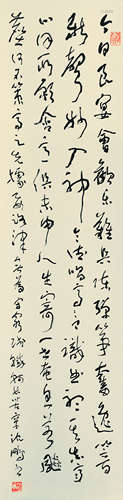 今日良宴會歡樂難具陳彈箏奮逸響
新聲妙入神令德唱高言識曲聽其真齊
心同所願含意俱未申人生寄一世奄忽若飆
塵何不策高足先據要路津無為守窮賤轗軻長苦辛沈鵬